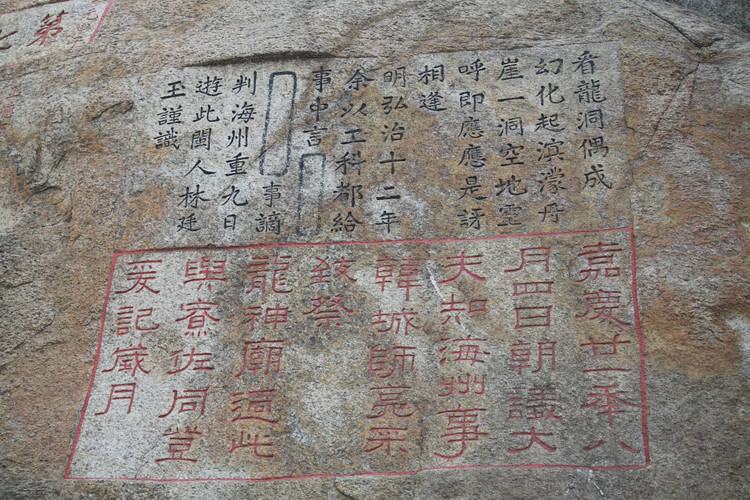 看龍洞偶成
幻化起溟濛丹
崖一洞空地靈
呼即應應是訝
相逢
明弘治十二年
余以工科都給
事中言
事謫
判海州重九日
遊此閩人林廷
玉謹識
嘉慶廿一年八
月四日朝議大
夫知海州事
韓城師亮采
致祭
龍神廟過此
與寮佐同登
爰記歲月
第